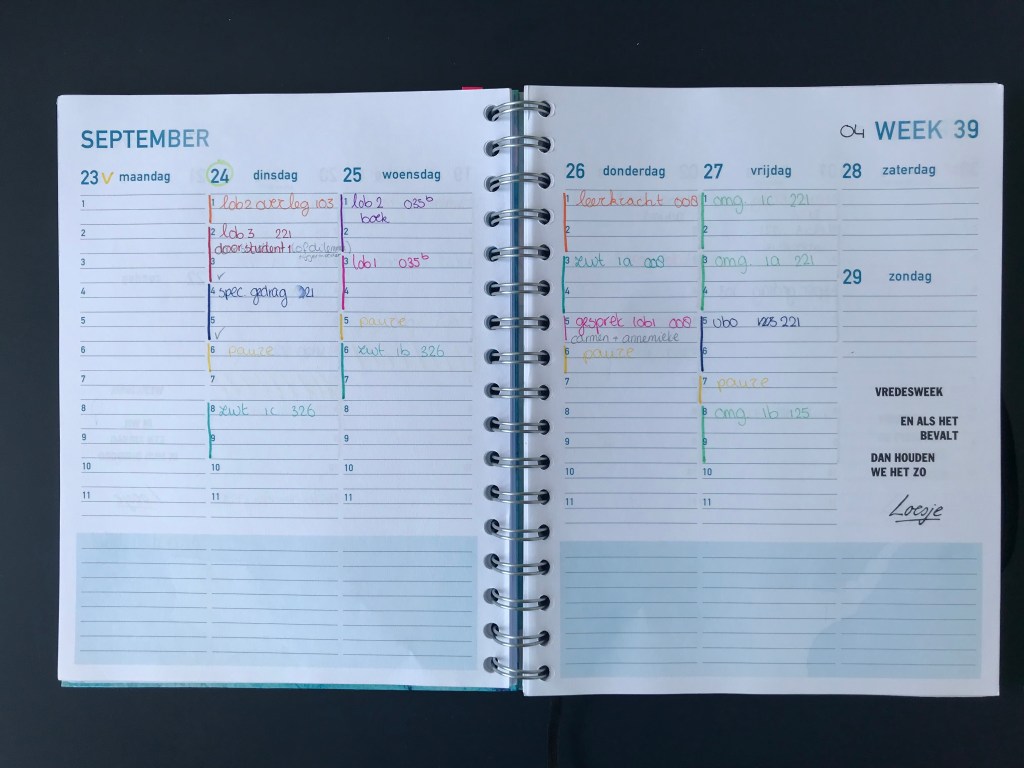 SEPTEMBER
23 V maandag
1
2
3
4
5
6
7
8
9
10
11
24 dinsdag
1 lob2 overleg 103
2 lob 3 221
doorstudent 1
3 ✓
4 spec. gedrag 221
5 ✓
6 pauze
7
8 zwt 1c 326
9
10
11
25 woensdag
1 lob 2 035b
boek
2
3 lob1 035b
4
5 pauze
6 zwt 1b 326
7
8
9
10
11
04 WEEK 39
26 donderdag
1 leerkracht 008
2
3 zwt 1a 009
4
5 gesprek lob1 009
carmen + annemieke
6 pauze
7
8
9
10
11
27 vrijdag
1 omg 1c 221
2
3 omg 1a 221
4
5 ubo 221
6
7 pauze
8 omg 1b 125
9
10
11
28 zaterdag
29 zondag
VREDESWEEK
EN ALS HET
BEVALT
DAN HOUDEN
WE HET ZO
Loesje